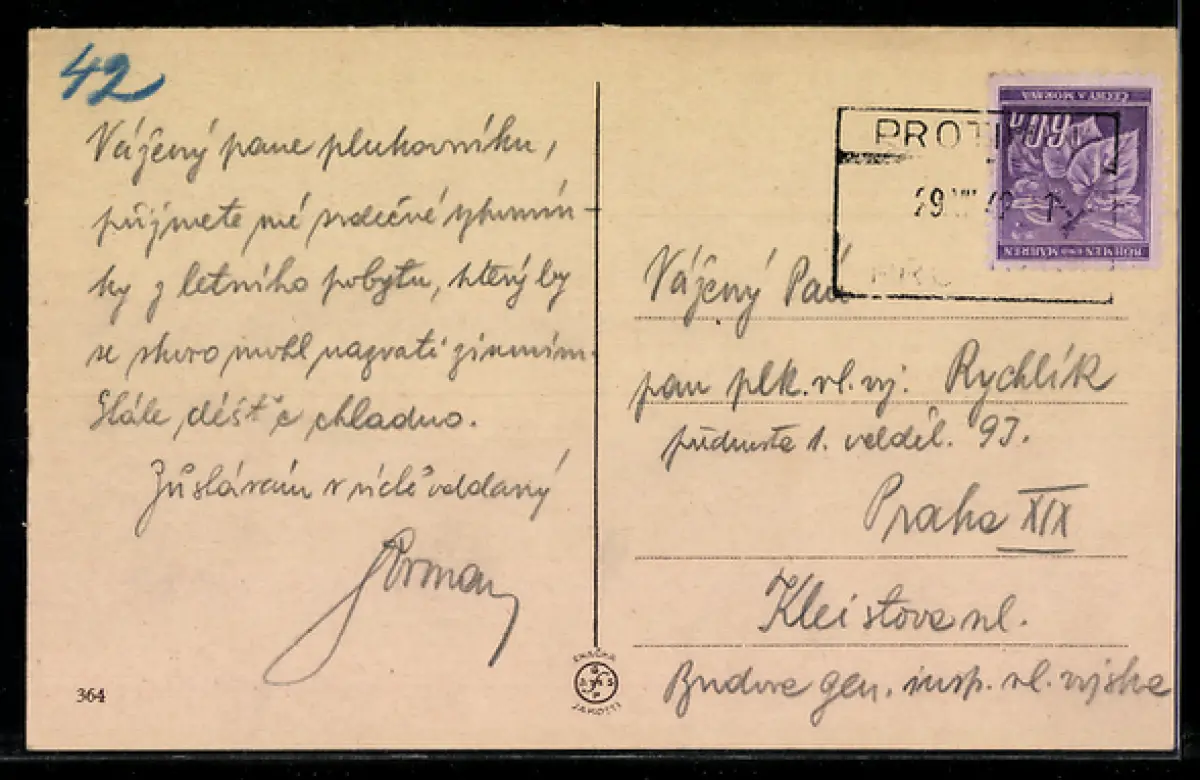 42
Vážený pane plukovníku,
přijměte mé srdečné vzpomín-
ky z letního pobytu, který by
se skoro mohl nazvati zimním.
Stále déšť a chladno.
Zůstávám v úctě oddaný
364
ZNAČKA
JAKOSTI
ČECHY A MORAVA
60h
BÖHMEN UND MÄHREN
PROTI
29 VII 42
Vážený Pan
pan plk. vl. voj. Rychlík
přednosta 1. odděl. 93.
Praha XIX
Kleistova ul.
Budova gen. insp. vl. vojska